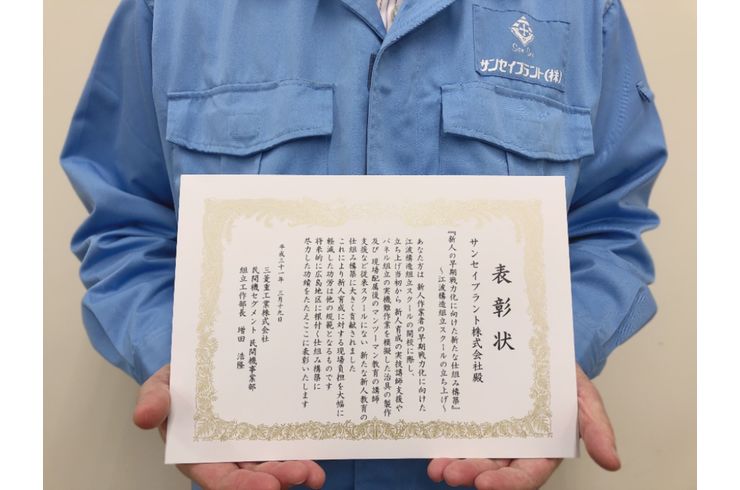 San Sei
サンセイプラント(株)
表彰状
サンセイプラント株式会社殿
『新人の早期戦力化に向けた新たな仕組み構築』
～江波構造組立スクールの立ち上げ～
あなた方は、新人作業者の早期戦力化に向けた
江波構造組立スクールの開校に際し、
立ち上げ当初から、新人育成の実技講師支援や
パネル組立の実機難作業を模擬した治具の製作
及び、現場配属後のマンツーマン教育の講師
支援など従来スクールにない、新たな新人教育の
仕組み構築に大きく貢献されました
これにより新人育成に対する現場負担を大幅に
軽減した功労は他の規範となるものです
将来的に広島地区に根付く仕組み構築に
尽力した功績をたたえここに表彰いたします
平成三十一年 三月十九日
三菱重工業株式会社
民間機セグメント 民間機事業部
組立工作部長 増田 浩隆